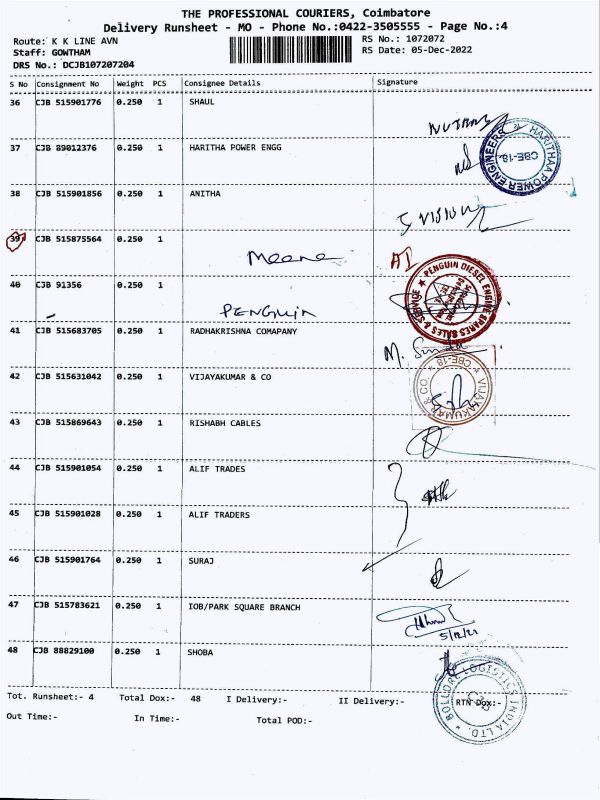 THE PROFESSIONAL COURIERS, Coimbatore
Delivery Runsheet - MO - Phone No.:0422-3505555 - Page No.:4
Route: K K LINE AVN RS No.: 1072072
Staff: GOWTHAM RS Date: 05-Dec-2022
DRS No.: DCJB107207204
S No Consignment No Weight PCS Consignee Details Signature
36 CJB 515901776 0.250 1 SHAUL
37 CJB 89012376 0.250 1 HARITHA POWER ENGG
HARITHAA POWER ENGINEERS CBE-18.
38 CJB 515901856 0.250 1 ANITHA
S VISION
39 CJB 515875564 0.250 1
Meena
40 CJB 91356 0.250 1
PENGUIN DIESEL ENGINE SPARES SALES & SERVICE
PENGUIN
41 CJB 515683705 0.250 1 RADHAKRISHNA COMAPANY
42 CJB 515631042 0.250 1 VIJAYAKUMAR & CO
VIJAYAKUMAR & CO. CBE-18
43 CJB 515869643 0.250 1 RISHABH CABLES
44 CJB 515901054 0.250 1 ALIF TRADES
45 CJB 515901028 0.250 1 ALIF TRADERS
46 CJB 515901764 0.250 1 SURAJ
47 CJB 515783621 0.250 1 IOB/PARK SQUARE BRANCH
5/12/22
48 CJB 88829100 0.250 1 SHOBA
BOLLORE LOGISTICS INDIA LTD. CJB
Tot. Runsheet:- 4 Total Dox:- 48 I Delivery:- II Delivery:- RTN Dox:-
Out Time:- In Time:- Total POD:-